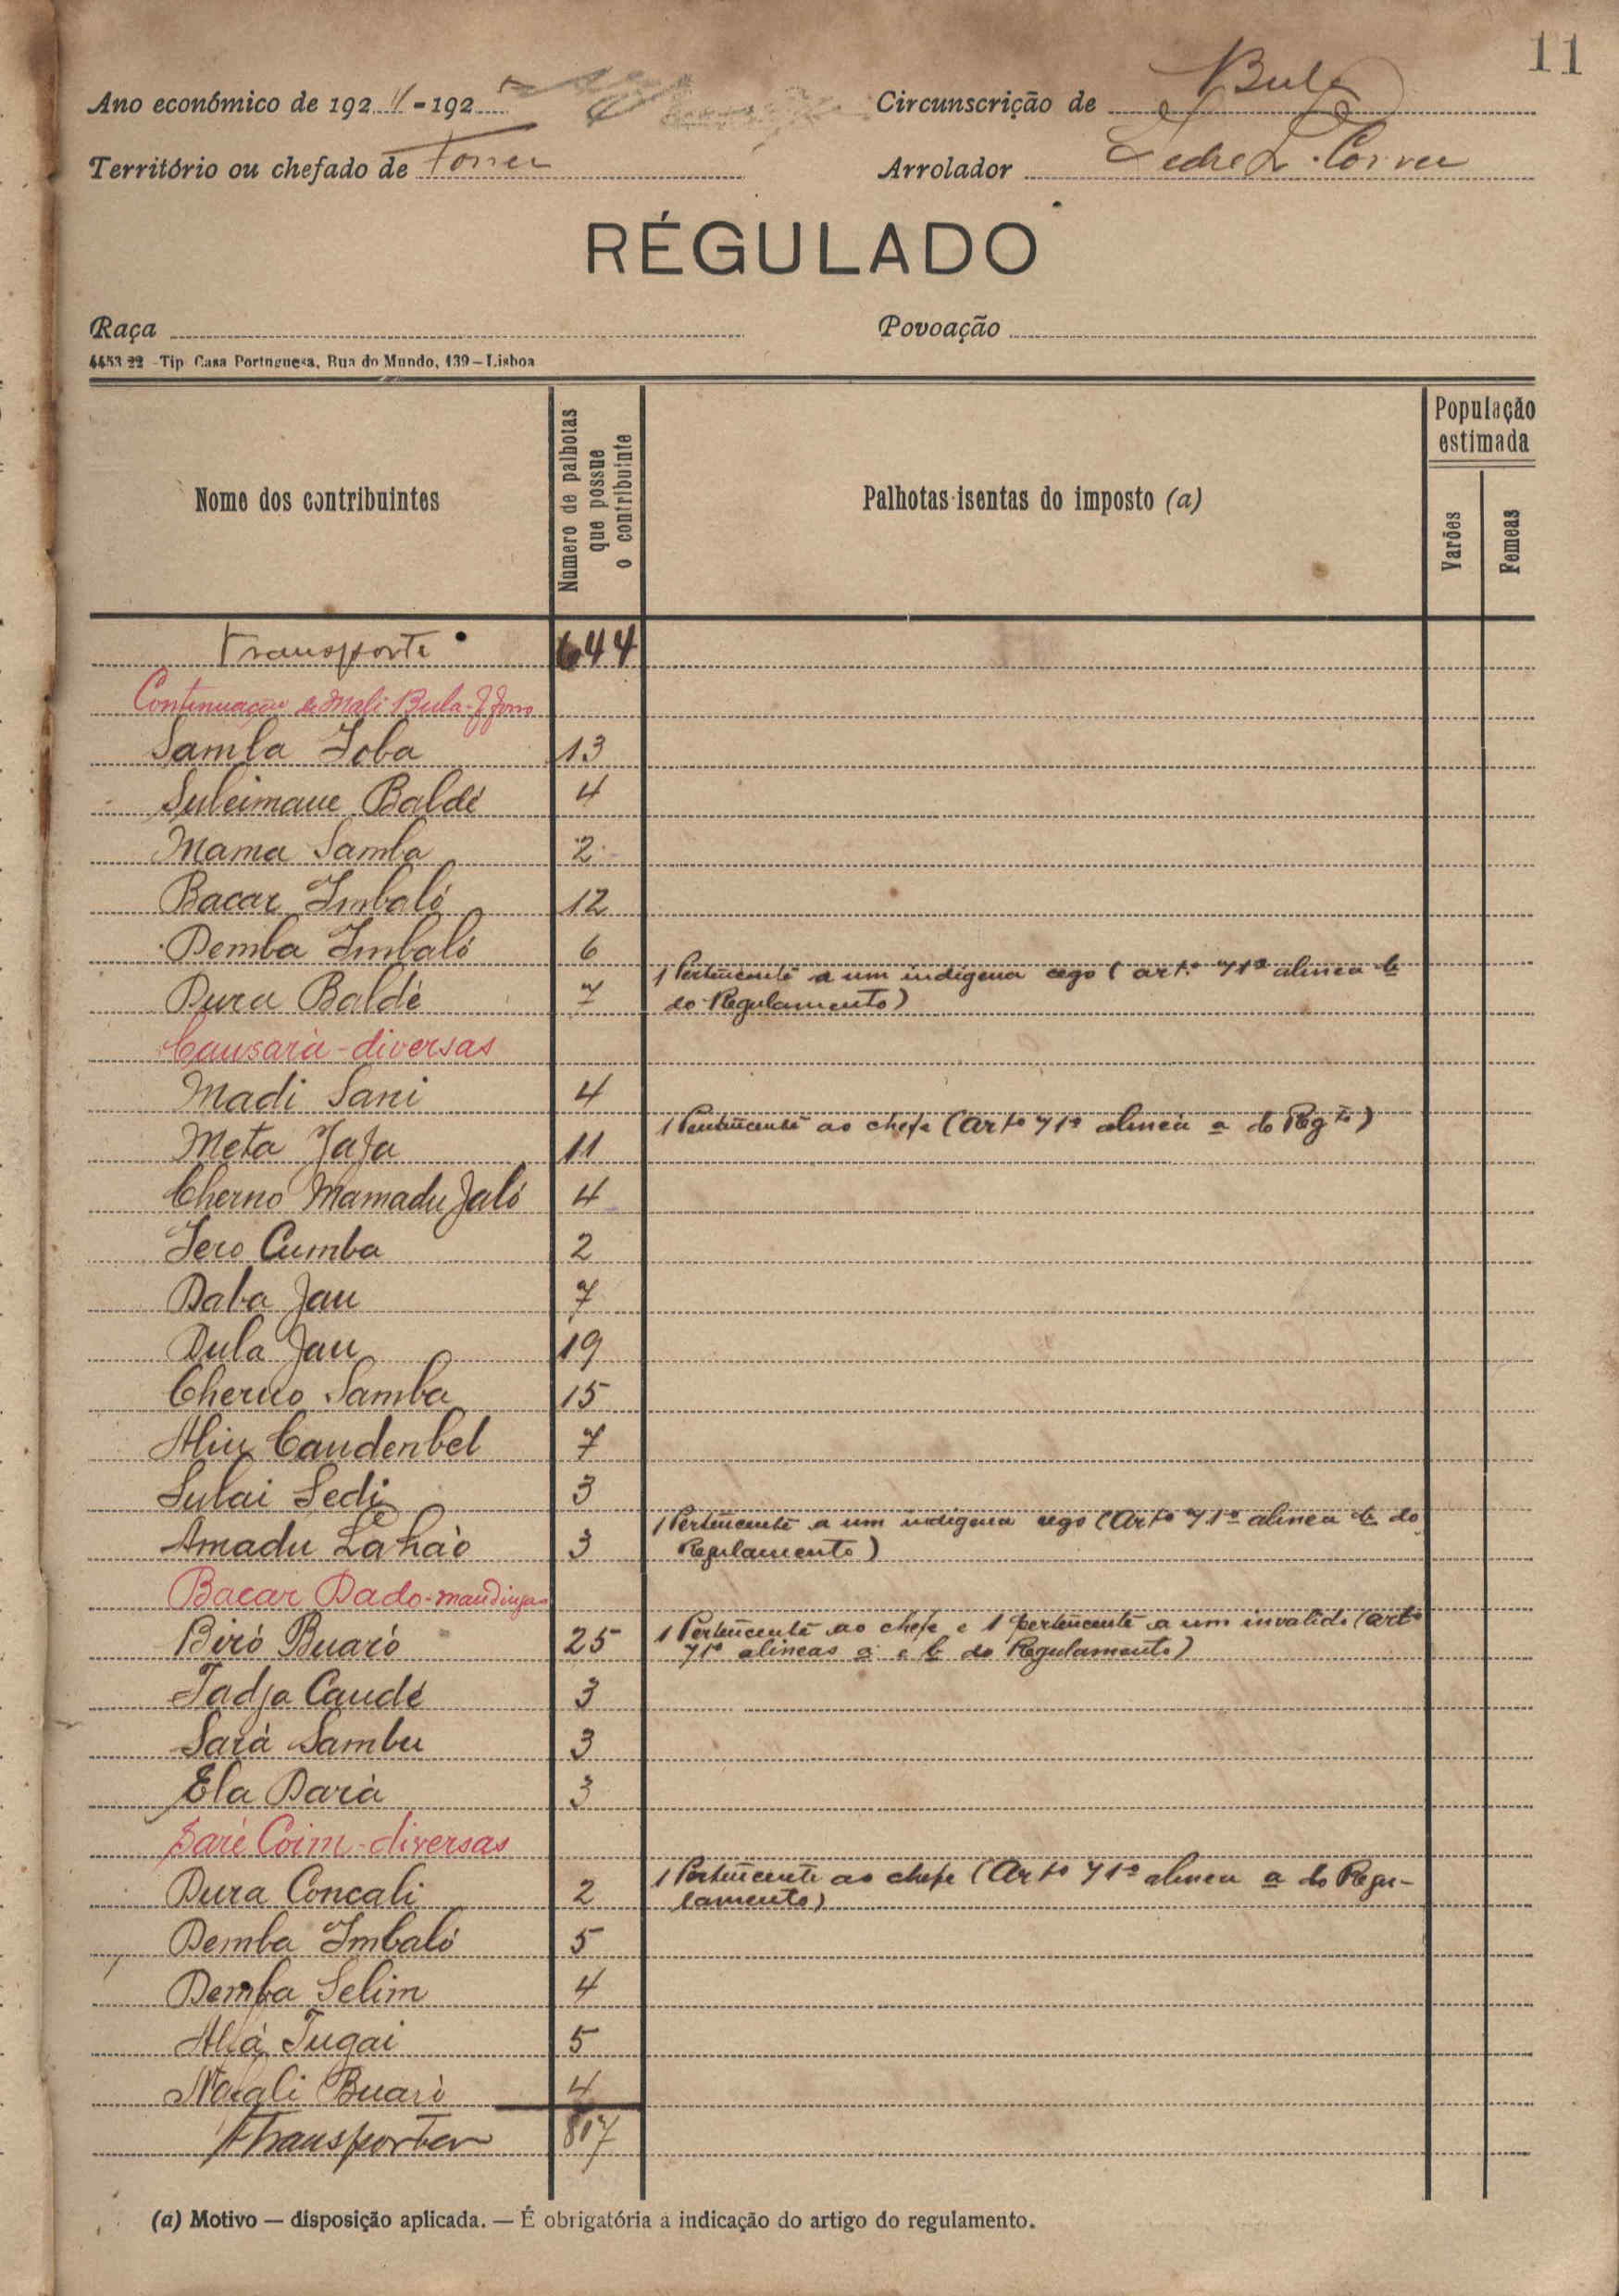 11
Ano económico de 1924-1925
Circunscrição de Bula
Território ou chefado de
Arrolador
RÉGULADO
Raça
Povoação
4453 22 - Tip Casa Portuguesa, Rua do Mundo, 139 - Lisboa
Nome dos contribuintes
Numero de palhotas que possue o contribuinte
Palhotas isentas do imposto (a)
População estimada
Varões
Femeas
Transporte 644
Continuação de Mali Bula
Samba Joba 13
Suleimane Baldé 4
Mama Samba 2
Bacar Imbaló 12
Demba Imbaló 6
Dura Baldé 7 1 Pertencente a um indigena cego (artº 71º alinea b
do Regulamento)
Causará - diversas
Madi Sani 4
Meta Jaja 11 1 Pertencente ao chefe (Artº 71º alinea a do Regtº)
Cherno Mamadu Jaló 4
Jero Cumba 2
Daba Jau 7
Dula Jau 19
Cherno Samba 15
Aliu Candenbel 7
Sulai Sedi 3
Amadu 3 1 Pertencente a um indigena cego (Artº 71º alinea b do
Regulamento)
Bacar Dado - mandingas
Biró Buaró 25 1 Pertencente ao chefe e 1 pertencente a um invalido (artº
71º alineas a e b do Regulamento)
Tadja Caudé 3
Sará Sambu 3
Ela Dará 3
Saré Coim - diversas
Dura Concali 2 1 Pertencente ao chefe (Artº 71º alinea a do Regu-
lamento)
Demba Imbaló 5
Demba Selim 4
Aliá Tugai 5
Buaró 4
A Transportar 817
(a) Motivo — disposição aplicada. — É obrigatória a indicação do artigo do regulamento.